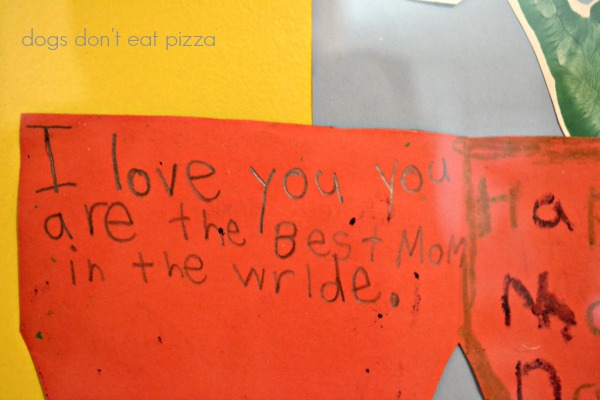 dogs don't eat pizza
I love you you
are the Best Mom
in the wrlde.
Ha